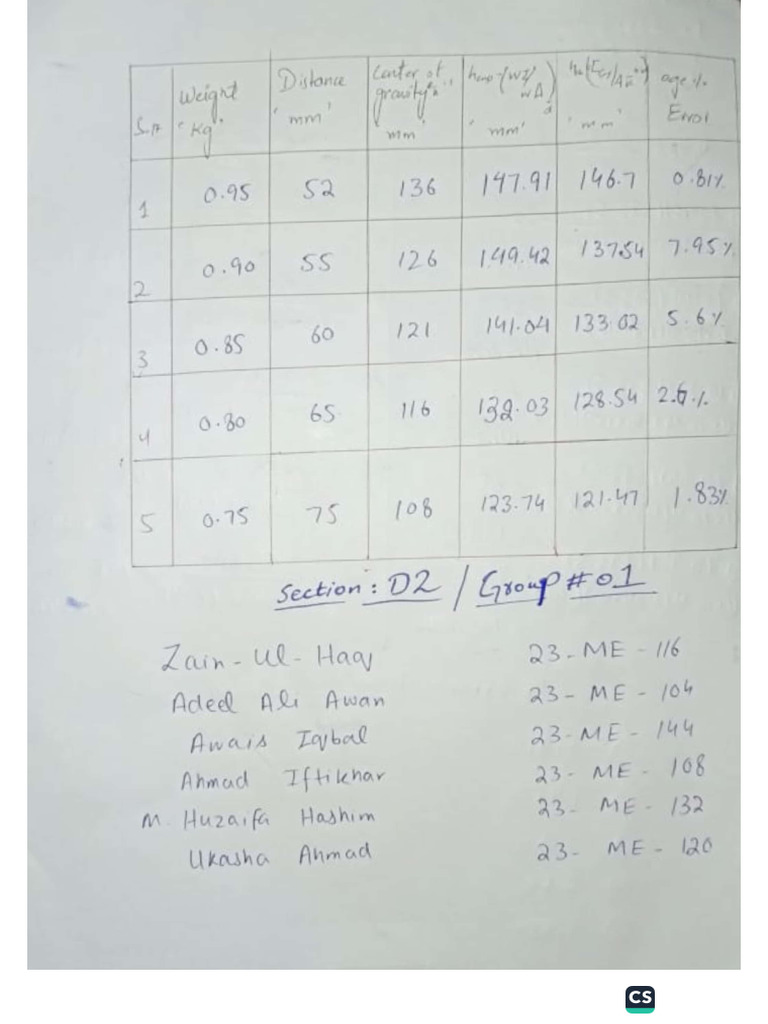 S.# Weight "Kg" Distance 'mm' Center of gravity 'mm' 'mm' 'mm' age % Error
1 0.95 52 136 147.91 146.7 0.81%
2 0.90 55 126 149.42 137.54 7.95%
3 0.85 60 121 141.04 133.02 5.6%
4 0.80 65 116 132.03 128.54 2.6%
5 0.75 75 108 123.74 121.47 1.83%
Section: D2 / Group # 01
Zain-Ul-Haq 23-ME-116
Adeel Ali Awan 23-ME-104
Awais Iqbal 23-ME-144
Ahmad Iftikhar 23-ME-108
M. Huzaifa Hashim 23-ME-132
Ukasha Ahmad 23-ME-120
CS